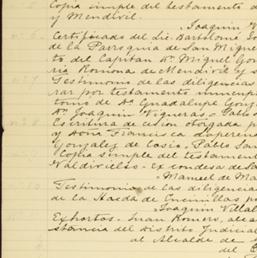 Copia simple del testamento d
y Mendivil.
Joaquin V
Certificado del Lic. Bartolomé
de la Parroquia de San Migue
to del Capitan Dn. Miguel Gon
ria Romona de Mendivil y
Testimonio de las diligencias
rar por testamento
tomo de Da. Guadalupe Gonz
Dn. Joaquin Figueras. Pablo
Escritura de cesion otorgada p
y Doña Francisca
Gonzalez de Cosio. Pablo San
Copia simple del testament
Valdivielso. Ex condesa de
Manuel de M
Testimonio de las diligencia
de la Hacda de Cucunillas po
Joaquin Villal
Exhortos. Juan Romero, alc
stancia del Distrito Judicial
al Alcalde de
del